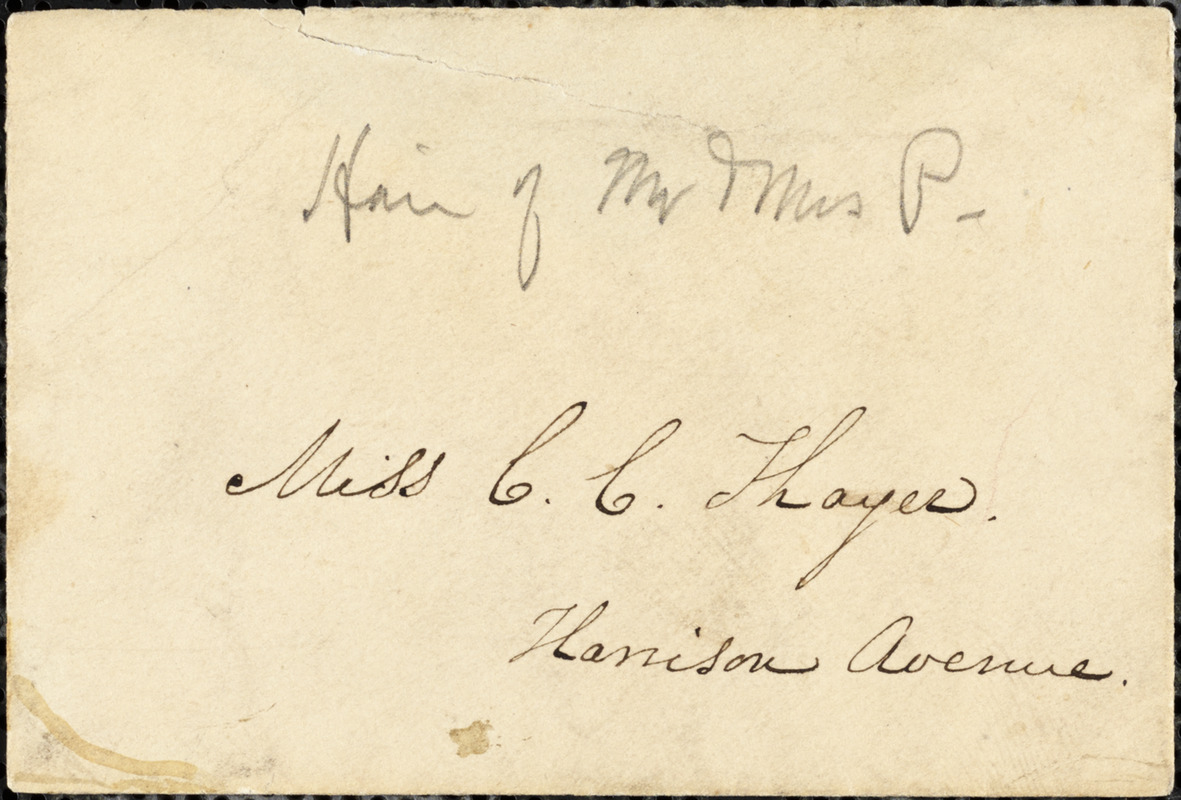 Hair of Mr & Mrs P-
Miss C. C. Thayer.
Harrison Avenue.